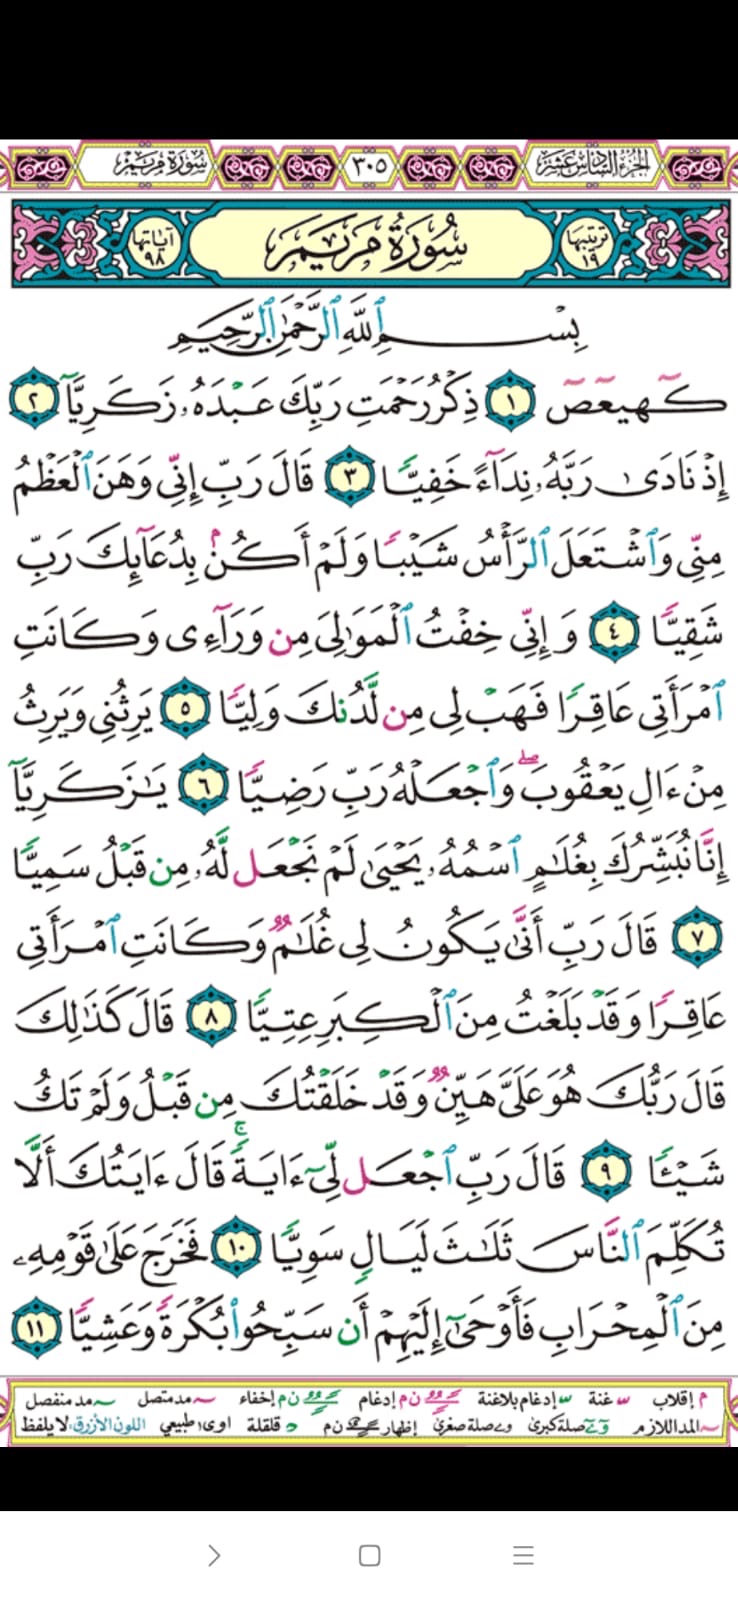 الجزء السادس عشر ٣٠٥ سورة مريم
ترتيبها ١٩ سورة مريم آياتها ٩٨
بِسْمِ ٱللَّهِ ٱلرَّحْمَٰنِ ٱلرَّحِيمِ
كٓهيعٓصٓ ١ ذِكْرُ رَحْمَتِ رَبِّكَ عَبْدَهُۥ زَكَرِيَّآ ٢
إِذْ نَادَىٰ رَبَّهُۥ نِدَآءً خَفِيًّا ٣ قَالَ رَبِّ إِنِّى وَهَنَ ٱلْعَظْمُ
مِنِّى وَٱشْتَعَلَ ٱلرَّأْسُ شَيْبًا وَلَمْ أَكُنۢ بِدُعَآئِكَ رَبِّ
شَقِيًّا ٤ وَإِنِّى خِفْتُ ٱلْمَوَٰلِىَ مِن وَرَآءِى وَكَانَتِ
ٱمْرَأَتِى عَاقِرًا فَهَبْ لِى مِن لَّدُنكَ وَلِيًّا ٥ يَرِثُنِى وَيَرِثُ
مِنْ ءَالِ يَعْقُوبَ ۖ وَٱجْعَلْهُ رَبِّ رَضِيًّا ٦ يَٰزَكَرِيَّآ
إِنَّا نُبَشِّرُكَ بِغُلَٰمٍ ٱسْمُهُۥ يَحْيَىٰ لَمْ نَجْعَل لَّهُۥ مِن قَبْلُ سَمِيًّا
٧ قَالَ رَبِّ أَنَّىٰ يَكُونُ لِى غُلَٰمٌ وَكَانَتِ ٱمْرَأَتِى
عَاقِرًا وَقَدْ بَلَغْتُ مِنَ ٱلْكِبَرِ عِتِيًّا ٨ قَالَ كَذَٰلِكَ
قَالَ رَبُّكَ هُوَ عَلَىَّ هَيِّنٌ وَقَدْ خَلَقْتُكَ مِن قَبْلُ وَلَمْ تَكُ
شَيْـًٔا ٩ قَالَ رَبِّ ٱجْعَل لِّىٓ ءَايَةً ۚ قَالَ ءَايَتُكَ أَلَّا
تُكَلِّمَ ٱلنَّاسَ ثَلَٰثَ لَيَالٍ سَوِيًّا ١٠ فَخَرَجَ عَلَىٰ قَوْمِهِۦ
مِنَ ٱلْمِحْرَابِ فَأَوْحَىٰٓ إِلَيْهِمْ أَن سَبِّحُوا۟ بُكْرَةً وَعَشِيًّا ١١
م إقلاب غنة إدغام بلاغنة ن م إدغام ن م إخفاء مد متصل مد منفصل
المد اللازم صلة كبرى صلة صغرى إظهار ن م قلقلة اوى طبيعي اللون الأزرق: لا يلفظ